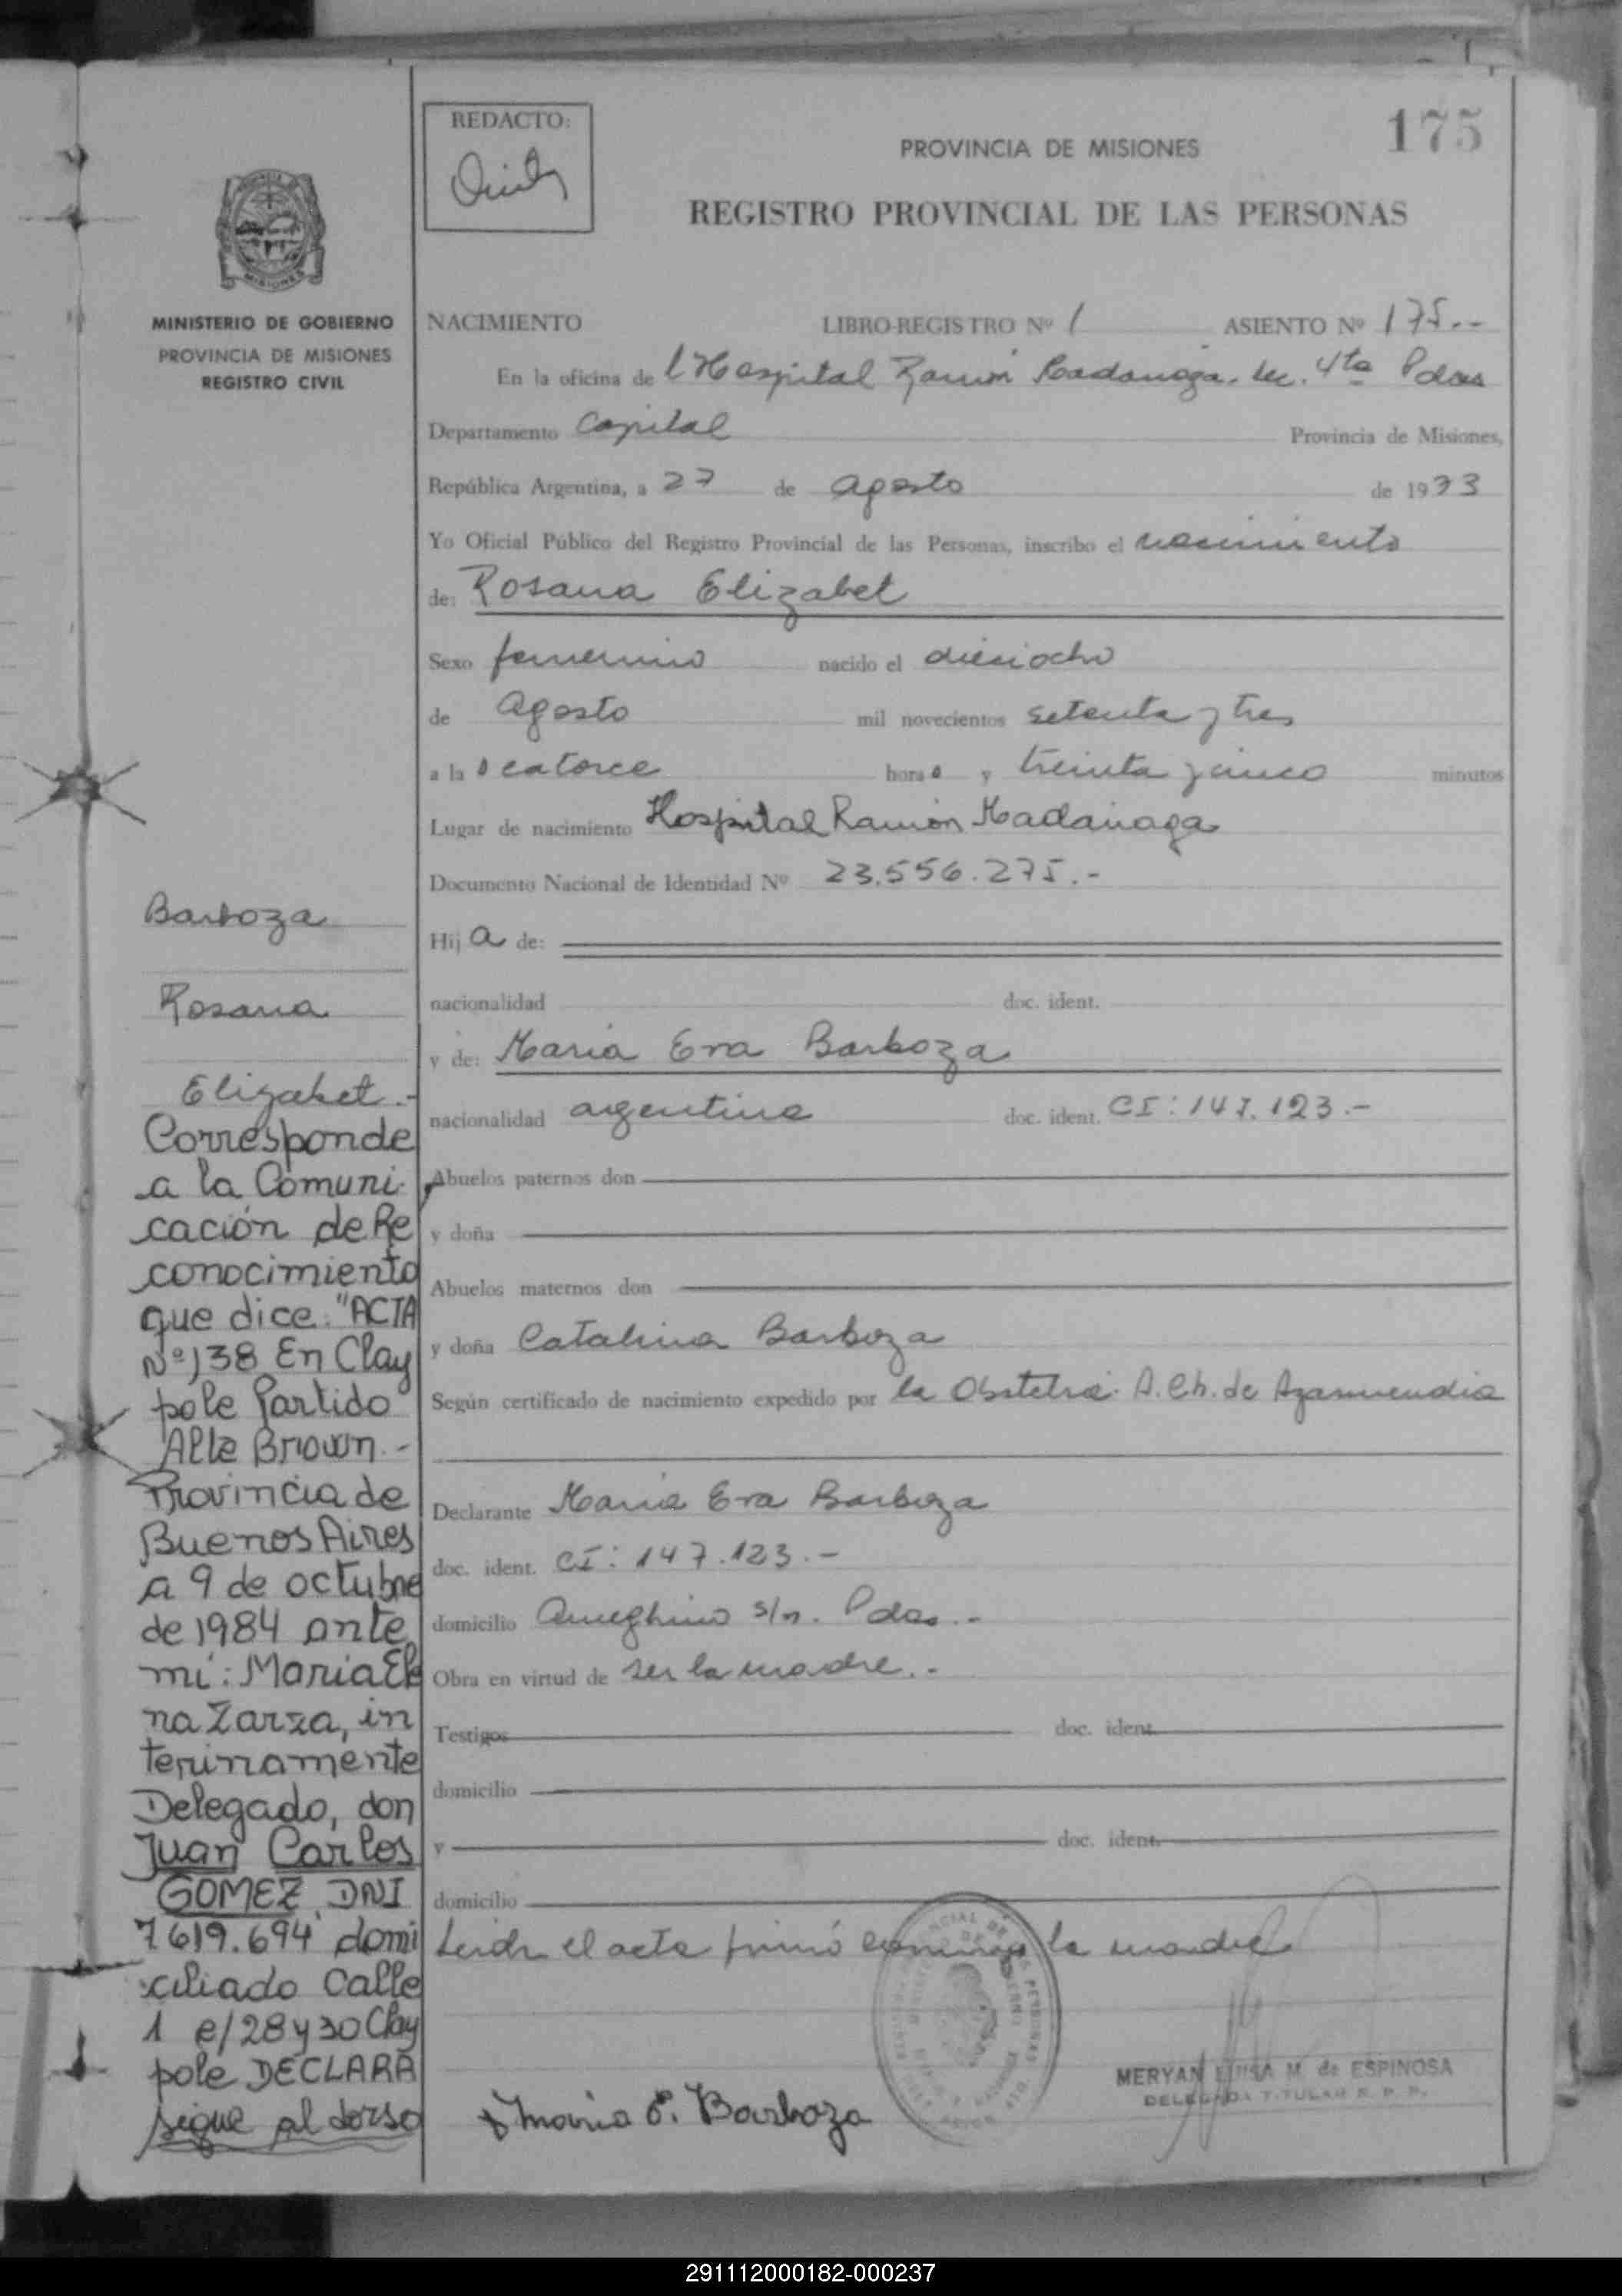 175
REDACTO:
PROVINCIA DE MISIONES
REGISTRO PROVINCIAL DE LAS PERSONAS
MISIONES
MINISTERIO DE GOBIERNO
PROVINCIA DE MISIONES
REGISTRO CIVIL
NACIMIENTO LIBRO-REGISTRO Nº 1 ASIENTO Nº 175.--
En la oficina de l Hospital Ramón Madariaga. Sec. 4ta Pdas
Departamento Capital Provincia de Misiones,
República Argentina, a 27 de agosto de 1973
Yo Oficial Público del Registro Provincial de las Personas, inscribo el nacimiento
de: Rosana Elizabet
Sexo femenino nacido el dieciocho
de agosto mil novecientos setenta y tres
a las catorce horas y treinta y cinco minutos
Lugar de nacimiento Hospital Ramón Madariaga
Documento Nacional de Identidad Nº 23.556.275.-
Hij a de:
nacionalidad doc. ident.
y de: Maria Eva Barboza
nacionalidad argentina doc. ident. CI: 147.123.-
Abuelos paternos don
y doña
Abuelos maternos don
y doña Catalina Barboza
Según certificado de nacimiento expedido por la Obstetra: A. Ch. de
Declarante Maria Eva Barboza
doc. ident. CI: 147.123.-
domicilio Ameghino s/n. Pdas.-
Obra en virtud de ser la madre.-
Testigos doc. ident.
domicilio
y doc. ident.
domicilio
Leida el acta firmó conmigo la madre
Maria E. Barboza
MERYAN LUISA M. de ESPINOSA
DELEGADA TITULAR R. P. P.
Barboza
Rosana
Elizabet.-
Corresponde
a la Comuni-
cación de Re
conocimiento
que dice: "ACTA
Nº 138 En Clay
pole Partido
Alte Brown.-
Provincia de
Buenos Aires
a 9 de octubre
de 1984 ante
mí: Maria Ele
na Zarza, in
terinamente
Delegado, don
Juan Carlos
GOMEZ, DNI
7619.694 domi
ciliado Calle
1 e/28 y 30 Clay
pole DECLARA
sigue al dorso
291112000182-000237